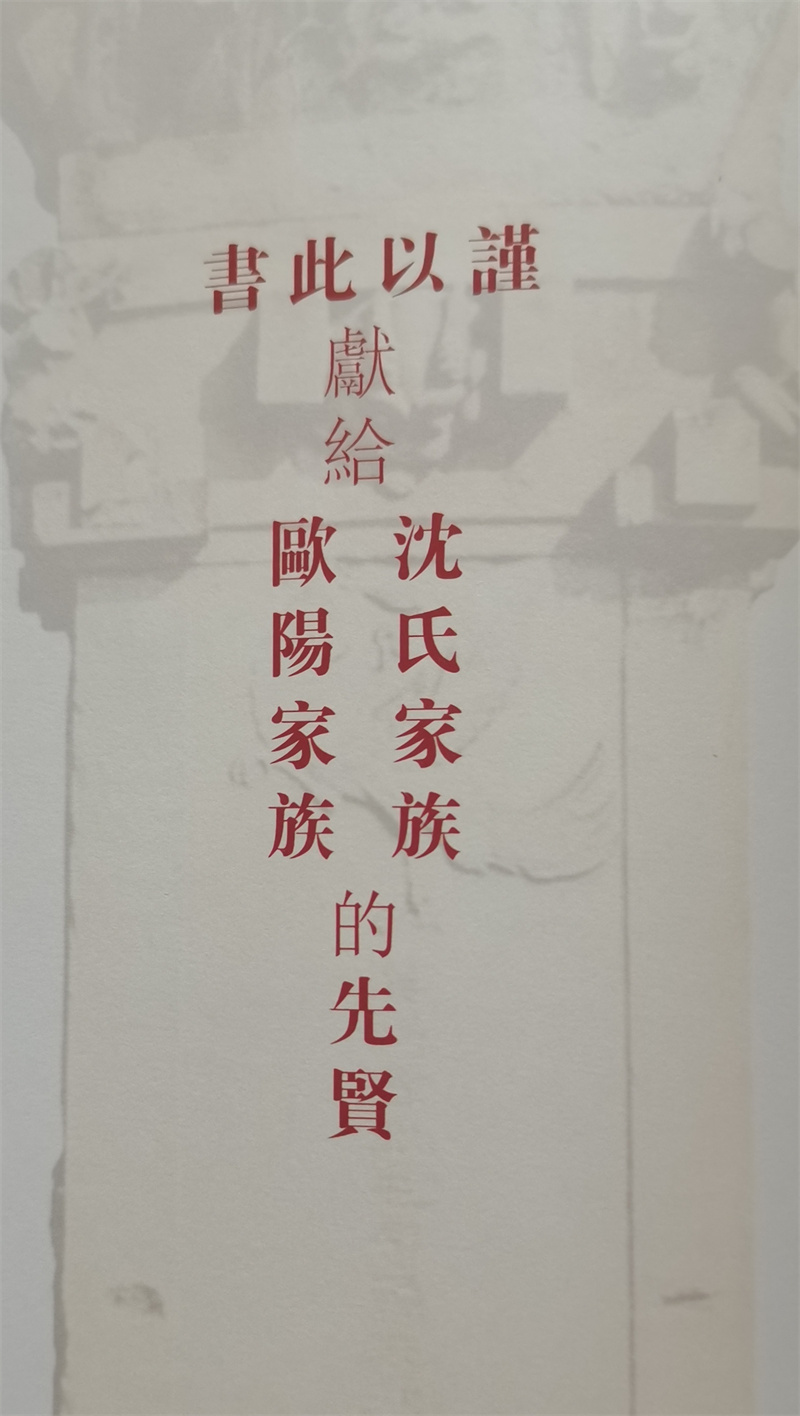 謹以此書
獻給
沈氏家族
歐陽家族
的先賢